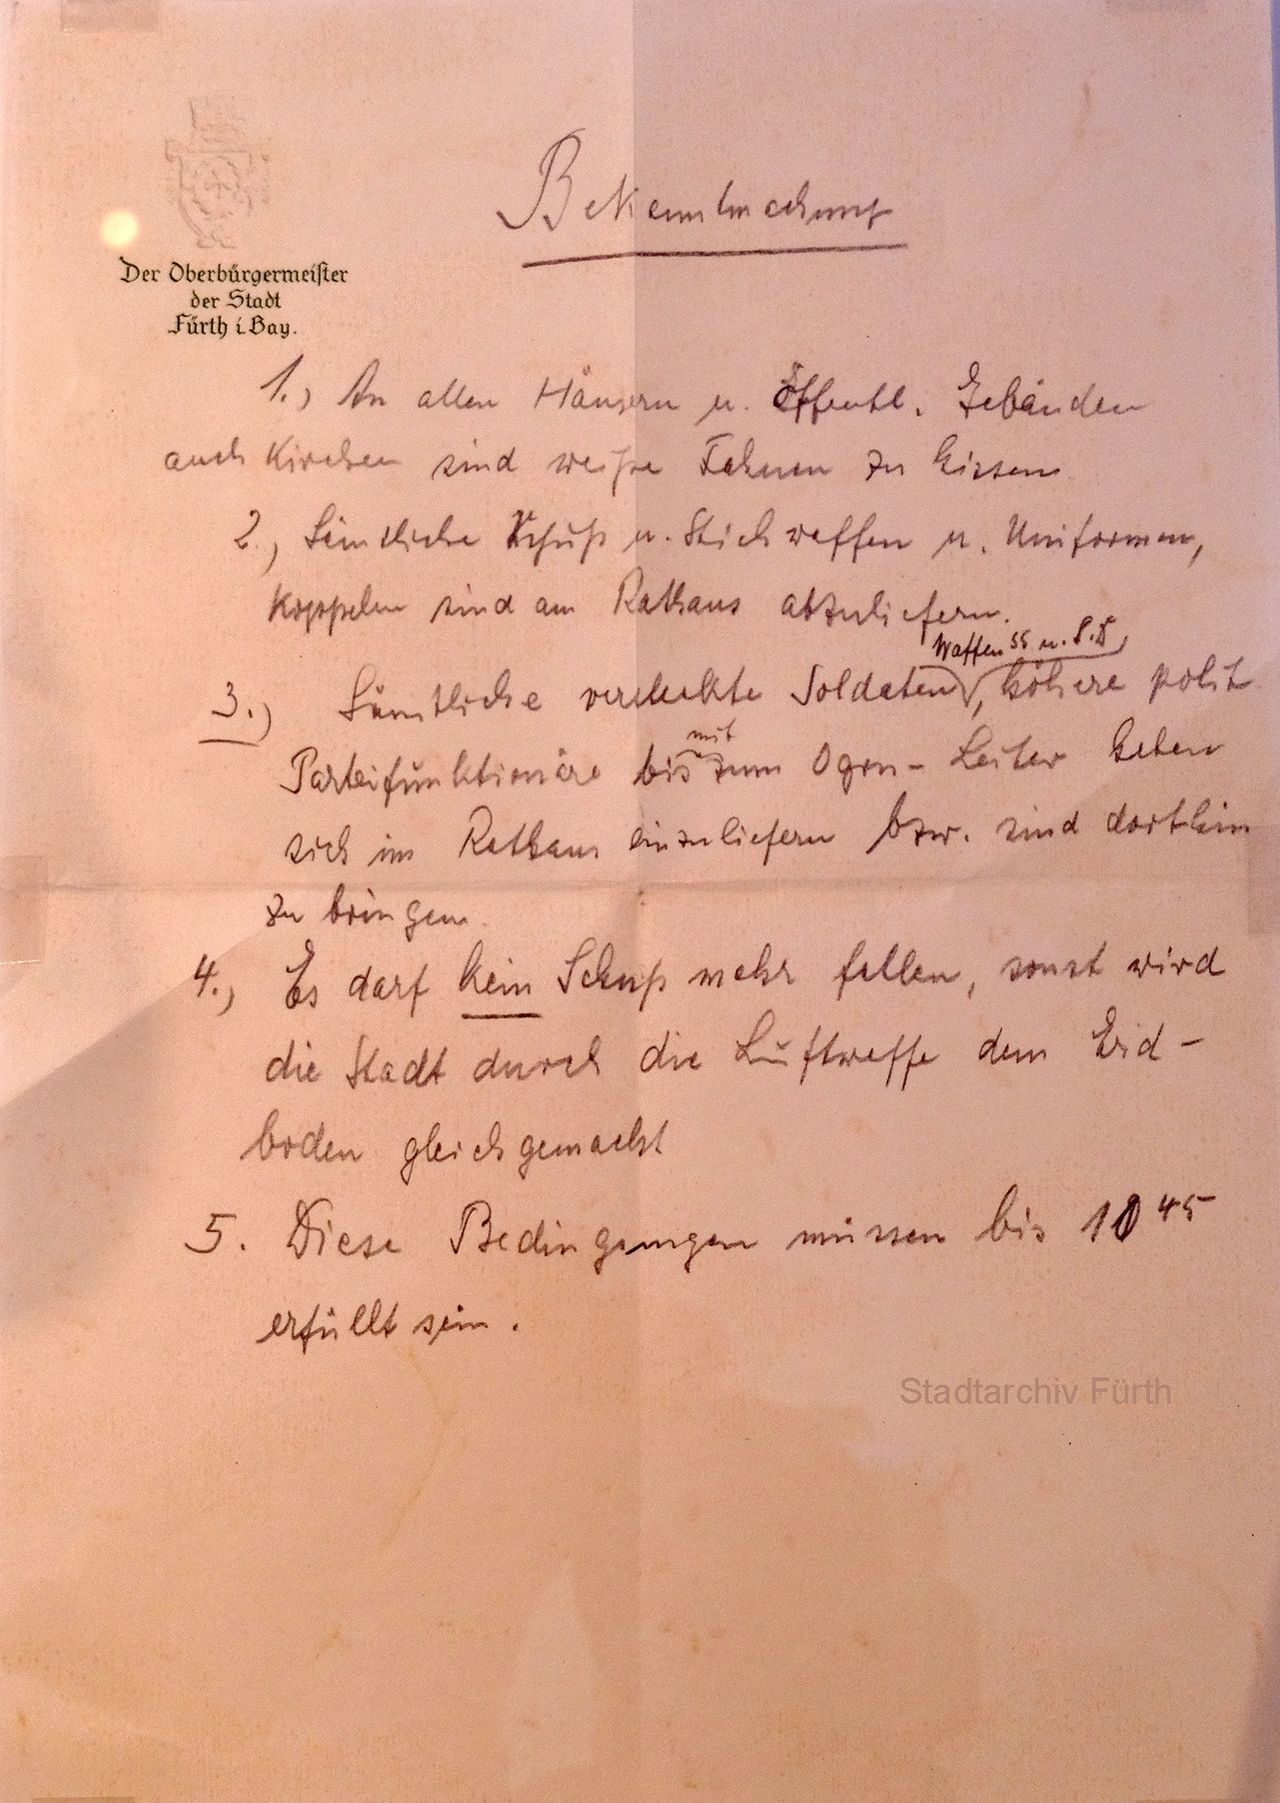 Bekanntmachung
Der Oberbürgermeister
der Stadt
Fürth i. Bay.
1.) An allen Häusern u. Öffentl. Gebäuden
auch Kirchen sind weiße Fahnen zu hissen
2.) Sämtliche Schuß u. Stichwaffen u. Uniformen,
Koppeln sind am Rathaus abzuliefern.
Waffen SS u. S.D,
3.) Sämtliche versteckte Soldaten, höhere polit.
mit
Parteifunktionäre bis zum Ogru- Leiter haben
sich im Rathaus einzuliefern bzw. sind dorthin
zu bringen.
4.) Es darf kein Schuß mehr fallen, sonst wird
die Stadt durch die Luftwaffe dem Erd-
boden gleichgemacht
5. Diese Bedingungen müssen bis 10 45
erfüllt sein.
Stadtarchiv Fürth